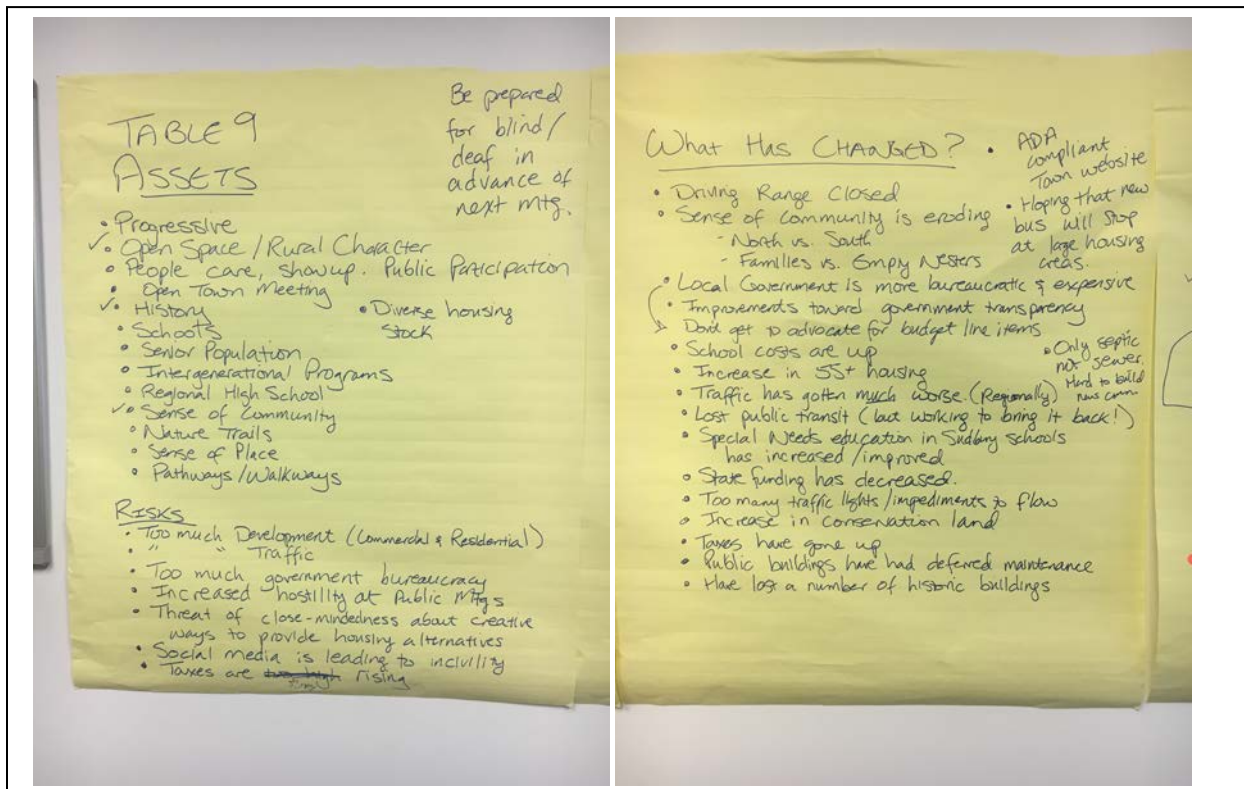 TABLE 9
ASSETS
Be prepared
for blind/
deaf in
advance of
next mtg.
• Progressive
✓• Open Space / Rural Character
• People care, show up. Public Participation
• Open Town Meeting
✓• History
• Diverse housing
stock
• Schools
• Senior Population
• Intergenerational Programs
• Regional High School
✓• Sense of Community
• Nature Trails
• Sense of Place
• Pathways/Walkways
RISKS
• Too much Development (Commercial & Residential)
• " " Traffic
• Too much government bureaucracy
• Increased hostility at Public Mtgs
• Threat of close-mindedness about creative
ways to provide housing alternatives
• Social media is leading to incivility
• Taxes are too high rising
What Has CHANGED?
• ADA
compliant
Town website
• Hoping that new
bus will stop
at large housing
areas.
• Driving Range Closed
• Sense of Community is eroding
- North vs. South
- Families vs. Empty Nesters
• Local Government is more bureaucratic & expensive
• Improvements toward government transparency
Don't get to advocate for budget line items
• School costs are up
• Only septic
not sewer.
Hard to build
• Increase in 55+ housing
• Traffic has gotten much worse. (Regionally)
• Lost public transit (but working to bring it back!)
• Special Needs education in Sudbury schools
has increased/improved
• State funding has decreased.
• Too many traffic lights/impediments to flow
• Increase in conservation land
• Taxes have gone up
• Public buildings have had deferred maintenance
• Have lost a number of historic buildings